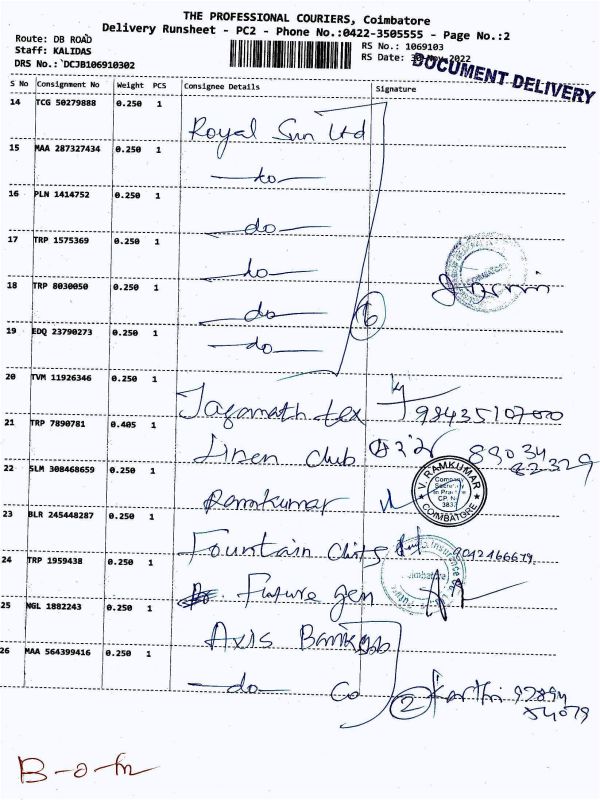 THE PROFESSIONAL COURIERS, Coimbatore
Delivery Runsheet - PC2 - Phone No.:0422-3505555 - Page No.:2
Route: DB ROAD
Staff: KALIDAS
DRS No.: DCJB106910302
RS No.: 1069103
RS Date: 30-Nov-2022
DOCUMENT DELIVERY
S No Consignment No Weight PCS Consignee Details Signature
14 TCG 50279888 0.250 1 Royal Sun Ltd
15 MAA 287327434 0.250 1 do
16 PLN 1414752 0.250 1 do
17 TRP 1575369 0.250 1 do
18 TRP 8030050 0.250 1 do 6
19 EDQ 23790273 0.250 1 do
20 TVM 11926346 0.250 1 Jaganath tex 9843510700
21 TRP 7890781 0.405 1 Linen club 89034 82329
22 SLM 308468659 0.250 1 Ramkumar
V. RAMKUMAR
Company
Secretary
in Practice
CP No
3837
COIMBATORE
23 BLR 245448287 0.250 1 Fountain
24 TRP 1959438 0.250 1 Future gen
25 NGL 1882243 0.250 1 Axis Bank
26 MAA 564399416 0.250 1 do Co 2 Karthi 92894 54079